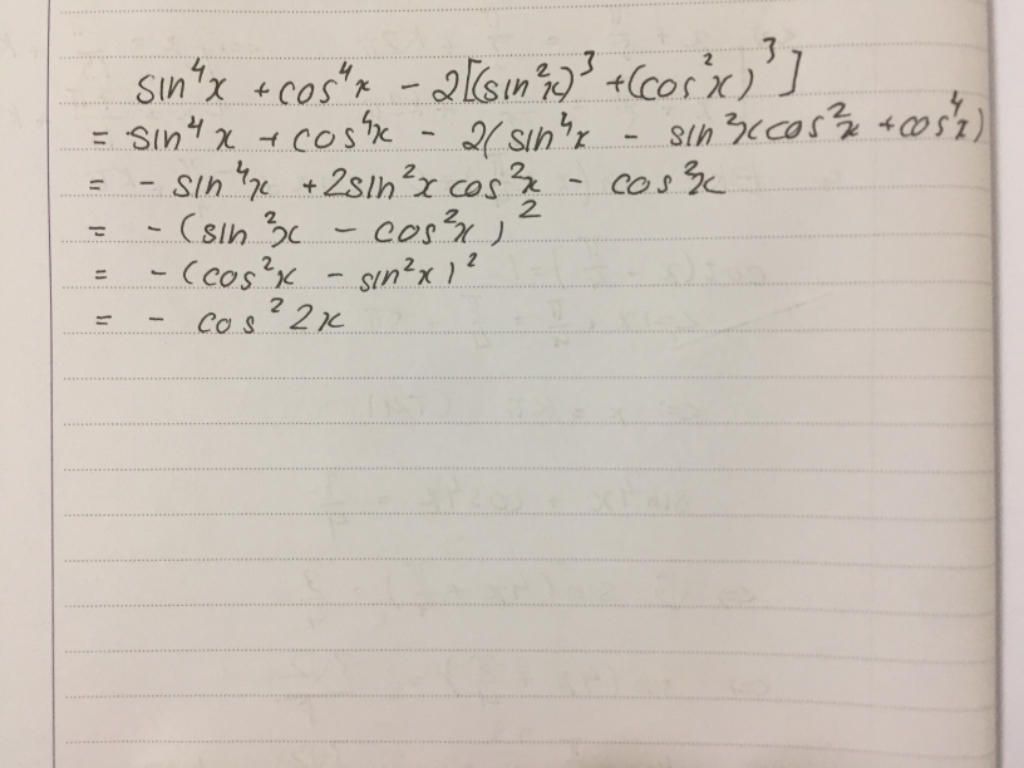 sin⁴x + cos⁴x - 2[(sin²x)³ + (cos²x)³]
= sin⁴x + cos⁴x - 2(sin⁴x - sin²x cos²x + cos⁴x)
= - sin⁴x + 2sin²x cos²x - cos²x
= - (sin²x - cos²x)²
= - (cos²x - sin²x)²
= - cos²2x